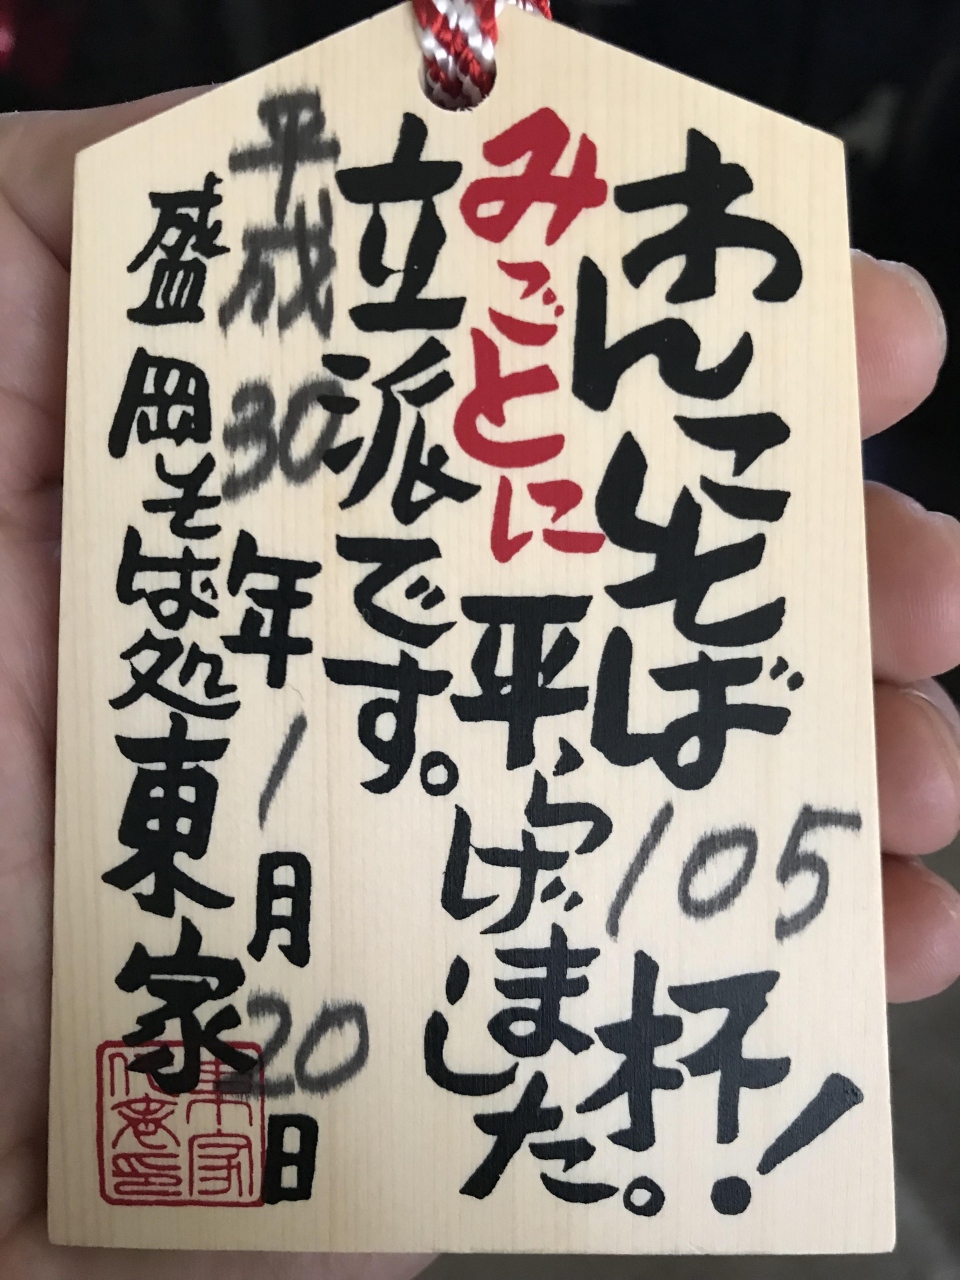 わんこそば105杯!
みごとに平らげました。
立派です。
平成30年1月20日
盛岡そば処東家